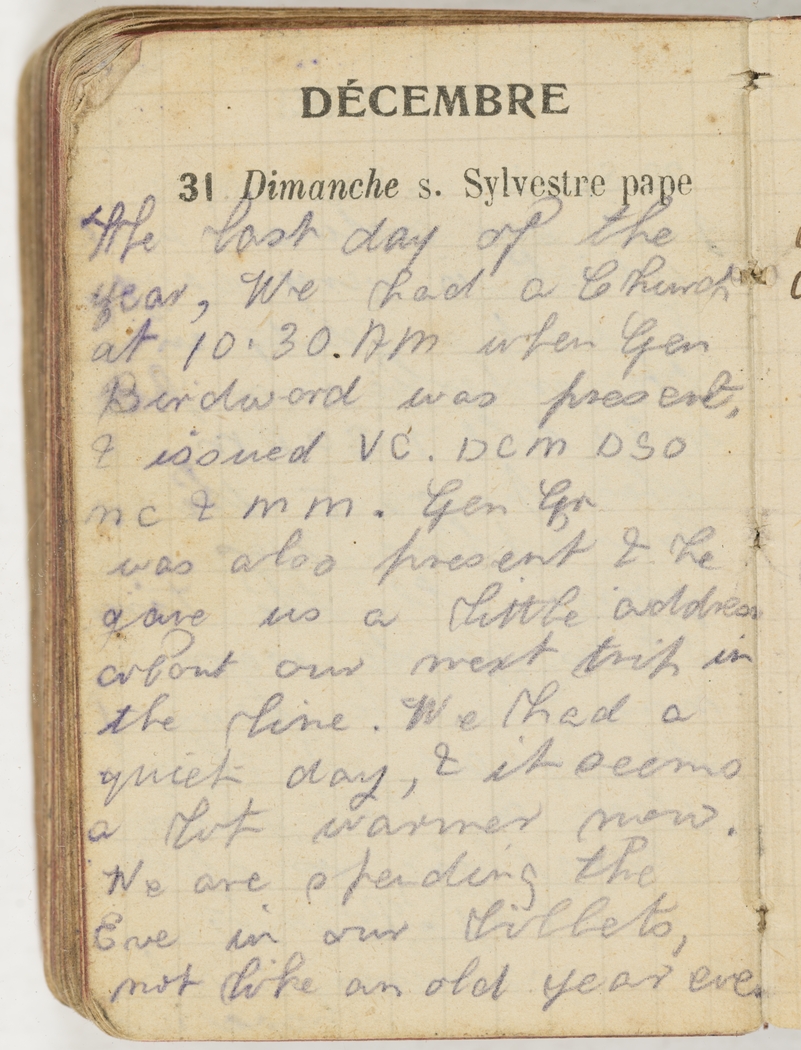 DÉCEMBRE
31 Dimanche s. Sylvestre pape
The last day of the
year, We had a Church
at 10.30. AM when Gen
Birdword was present,
& issued VC. DCM DSO
MC & MM. Gen
was also present & he
gave us a little address
about our next trip in
the line. We had a
quiet day, & it seems
a lot warmer now.
We are spending the
Eve in our billets,
not like an old year eve.